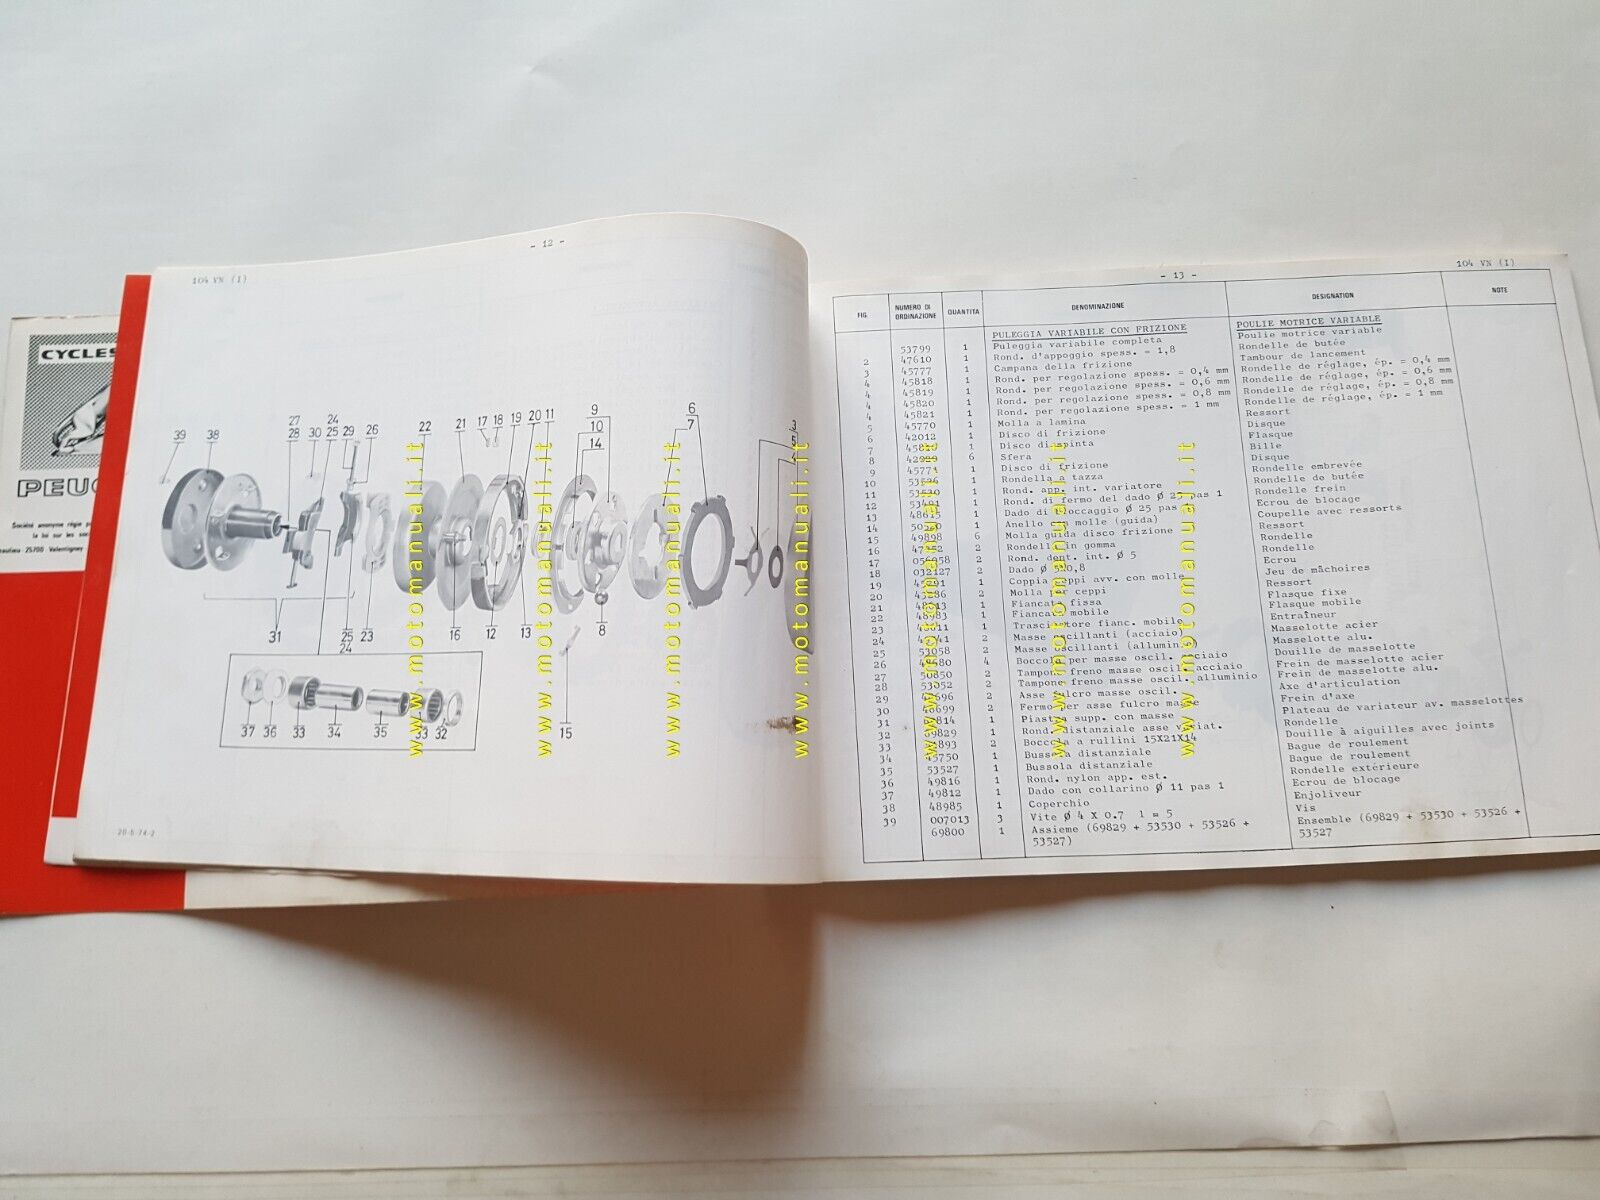 CYCLES
Société anonyme régie
la loi sur les
25700 Valentigney
- 12 -
104 VN (I)
39 38 27 28 30 24 25 29 26 22 21 17 18 19 20 11 9 10 14 6 7
31 25 24 23 16 12 13 8
37 36 33 34 35 33 32 15
20-5-74-2
- 13 -
104 VN (I)
FIG. NUMERO DI ORDINAZIONE QUANTITA DENOMINAZIONE DESIGNATION NOTE
PULEGGIA VARIABILE CON FRIZIONE POULIE MOTRICE VARIABLE
53799 1 Puleggia variabile completa Poulie motrice variable
2 47610 1 Rond. d'appoggio spess. = 1,8 Rondelle de butée
3 45777 1 Campana della frizione Tambour de lancement
4 45818 1 Rond. per regolazione spess. = 0,4 mm Rondelle de réglage, ép. = 0,4 mm
4 45819 1 Rond. per regolazione spess. = 0,6 mm Rondelle de réglage, ép. = 0,6 mm
4 45820 1 Rond. per regolazione spess. = 0,8 mm Rondelle de réglage, ép. = 0,8 mm
4 45821 1 Rond. per regolazione spess. = 1 mm Rondelle de réglage, ép. = 1 mm
5 45770 1 Molla a lamina Ressort
6 42012 1 Disco di frizione Disque
7 1 Disco di spinta Flasque
8 6 Sfera Bille
9 45771 1 Disco di frizione Disque
10 53526 1 Rondella a tazza Rondelle embrevée
11 53530 1 Rond. app. int. variatore Rondelle de butée
12 1 Rond. di fermo del dado Ø 25 pas 1 Rondelle frein
13 48615 1 Dado di bloccaggio Ø 25 pas Ecrou de blocage
14 1 Anello con molle (guida) Coupelle avec ressorts
15 49898 6 Molla guida disco frizione Ressort
16 2 Rondella in gomma Rondelle
17 2 Rond. dent. int. Ø 5 Rondelle
18 2 Dado Ø Ecrou
19 1 Coppia ceppi avv. con molle Jeu de mâchoires
20 2 Molla per ceppi Ressort
21 1 Fiancata fissa Flasque fixe
22 1 Fiancata mobile Flasque mobile
23 1 Trascinatore fianc. mobile Entraîneur
24 2 Masse oscillanti (acciaio) Masselotte acier
25 53058 2 Masse oscillanti (alluminio) Masselotte alu.
26 4 Boccola per masse oscil. acciaio Douille de masselotte
27 50850 2 Tampone freno masse oscil. acciaio Frein de masselotte acier
28 2 Tampone freno masse oscil. alluminio Frein de masselotte alu.
29 2 Asse fulcro masse oscil. Axe d'articulation
30 2 Fermo per asse fulcro masse Frein d'axe
31 1 Piastra supp. con masse Plateau de variateur av. masselottes
32 69829 1 Rond. distanziale asse variat. Rondelle
33 2 Boccola a rullini 15X21X14 Douille à aiguilles avec joints
34 45750 1 Bussola distanziale Bague de roulement
35 53527 1 Bussola distanziale Bague de roulement
36 49816 1 Rond. nylon app. est. Rondelle extérieure
37 49812 1 Dado con collarino Ø 11 pas 1 Ecrou de blocage
38 48985 1 Coperchio Enjoliveur
39 007013 3 Vite Ø 4 X 0.7 l = 5 Vis
69800 1 Assieme (69829 + 53530 + 53526 + Ensemble (69829 + 53530 + 53526 +
53527) 53527
www.motomanuali.it
www.motomanuali.it
www.motomanuali.it
www.motomanuali.it
www.motomanuali.it
www.motomanuali.it
www.motomanuali.it